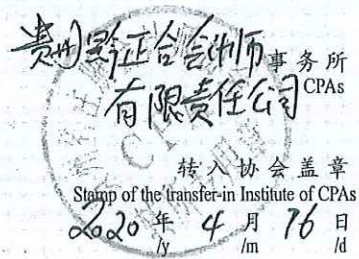 贵州黔正合会计师事务所
CPAs
有限责任公司
转入协会盖章
Stamp of the transfer-in Institute of CPAs
2020 年 4 月 16 日
/y /m /d